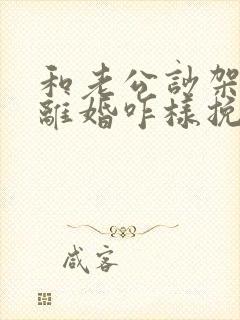 和老公訡架
離婚咋樣挽
咸客